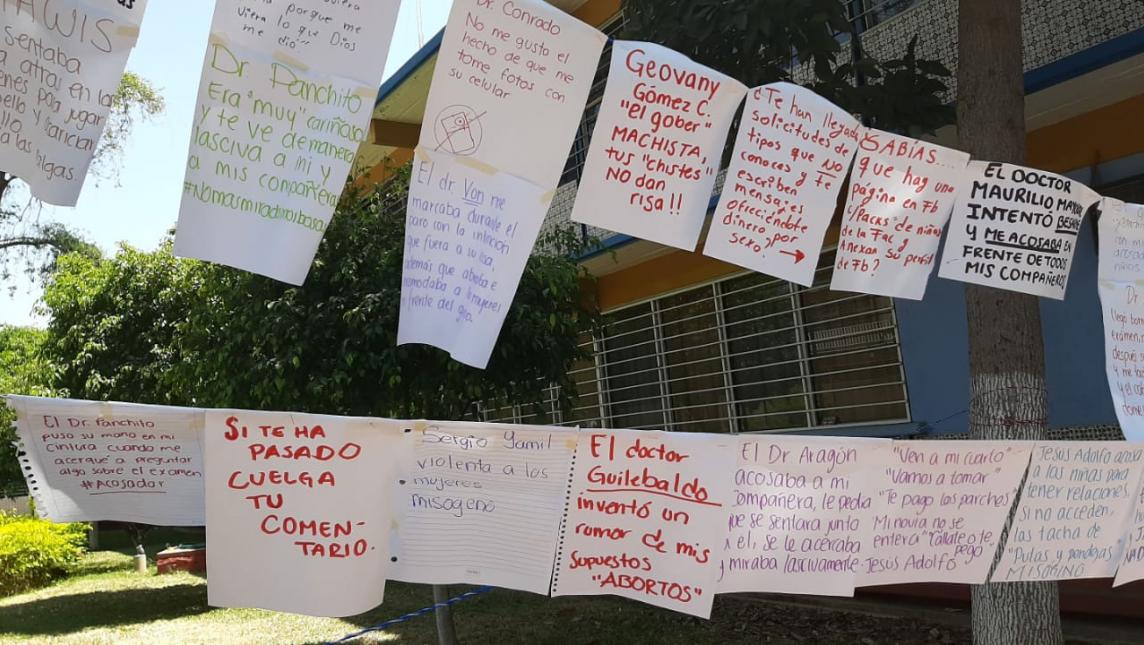 TAWIS
sentaba
atras en la
para jugar
las nalgas.
porque me
viera lo que Dios
me dió"
Dr. Panchito
Era "muy" cariñoso
y te ve de manera
lasciva a mi y
a mis compañeras
Dr. Conrado
No me gusta el
hecho de que me
tome fotos con
su celular
El dr Von me
marcaba durante el
paro con la intención
que fuera a su
además que
frente del
Geovany
Gómez C.
"el gober"
MACHISTA,
tus "chistes"
NO dan
risa !!
¿Te han llegado
solicitudes de
tipos que NO
conoces y te
escriben
mensajes
ofreciéndote
dinero por
sexo?
SABIAS...
que hay una
página en Fb
c/Packs de niñas
de la Fac y
Anexan su perfil
de Fb?
EL DOCTOR
MAURILIO
INTENTÓ
Y ME ACOSABA EN
FRENTE DE TODOS
MIS COMPAÑEROS
examen,
después
El Dr. Panchito
puso su mano en mi
cintura cuando me
acerqué a preguntar
algo sobre el examen
#Acosador
SI TE HA
PASADO
CUELGA
TU
COMEN-
TARIO.
Sergio Yamil
violenta a las
mujeres
misogeno
El doctor
Guilebaldo
inventó un
rumor de mis
supuestos
"ABORTOS"
El Dr Aragón
acosaba a mi
compañera, le pedia
que se sentara junto
a el, se le acercaba
y miraba lascivamente.
"Ven a mi cuarto"
"Vamos a tomar"
"Te pago los parches"
Mi novia no se
entera "Cállate o te
pego"
Jesús Adolfo
Jesús Adolfo acosa
a las niñas para
tener relaciones,
si no acceden,
las tacha de
"Putas y pendejas"
MISOGINO